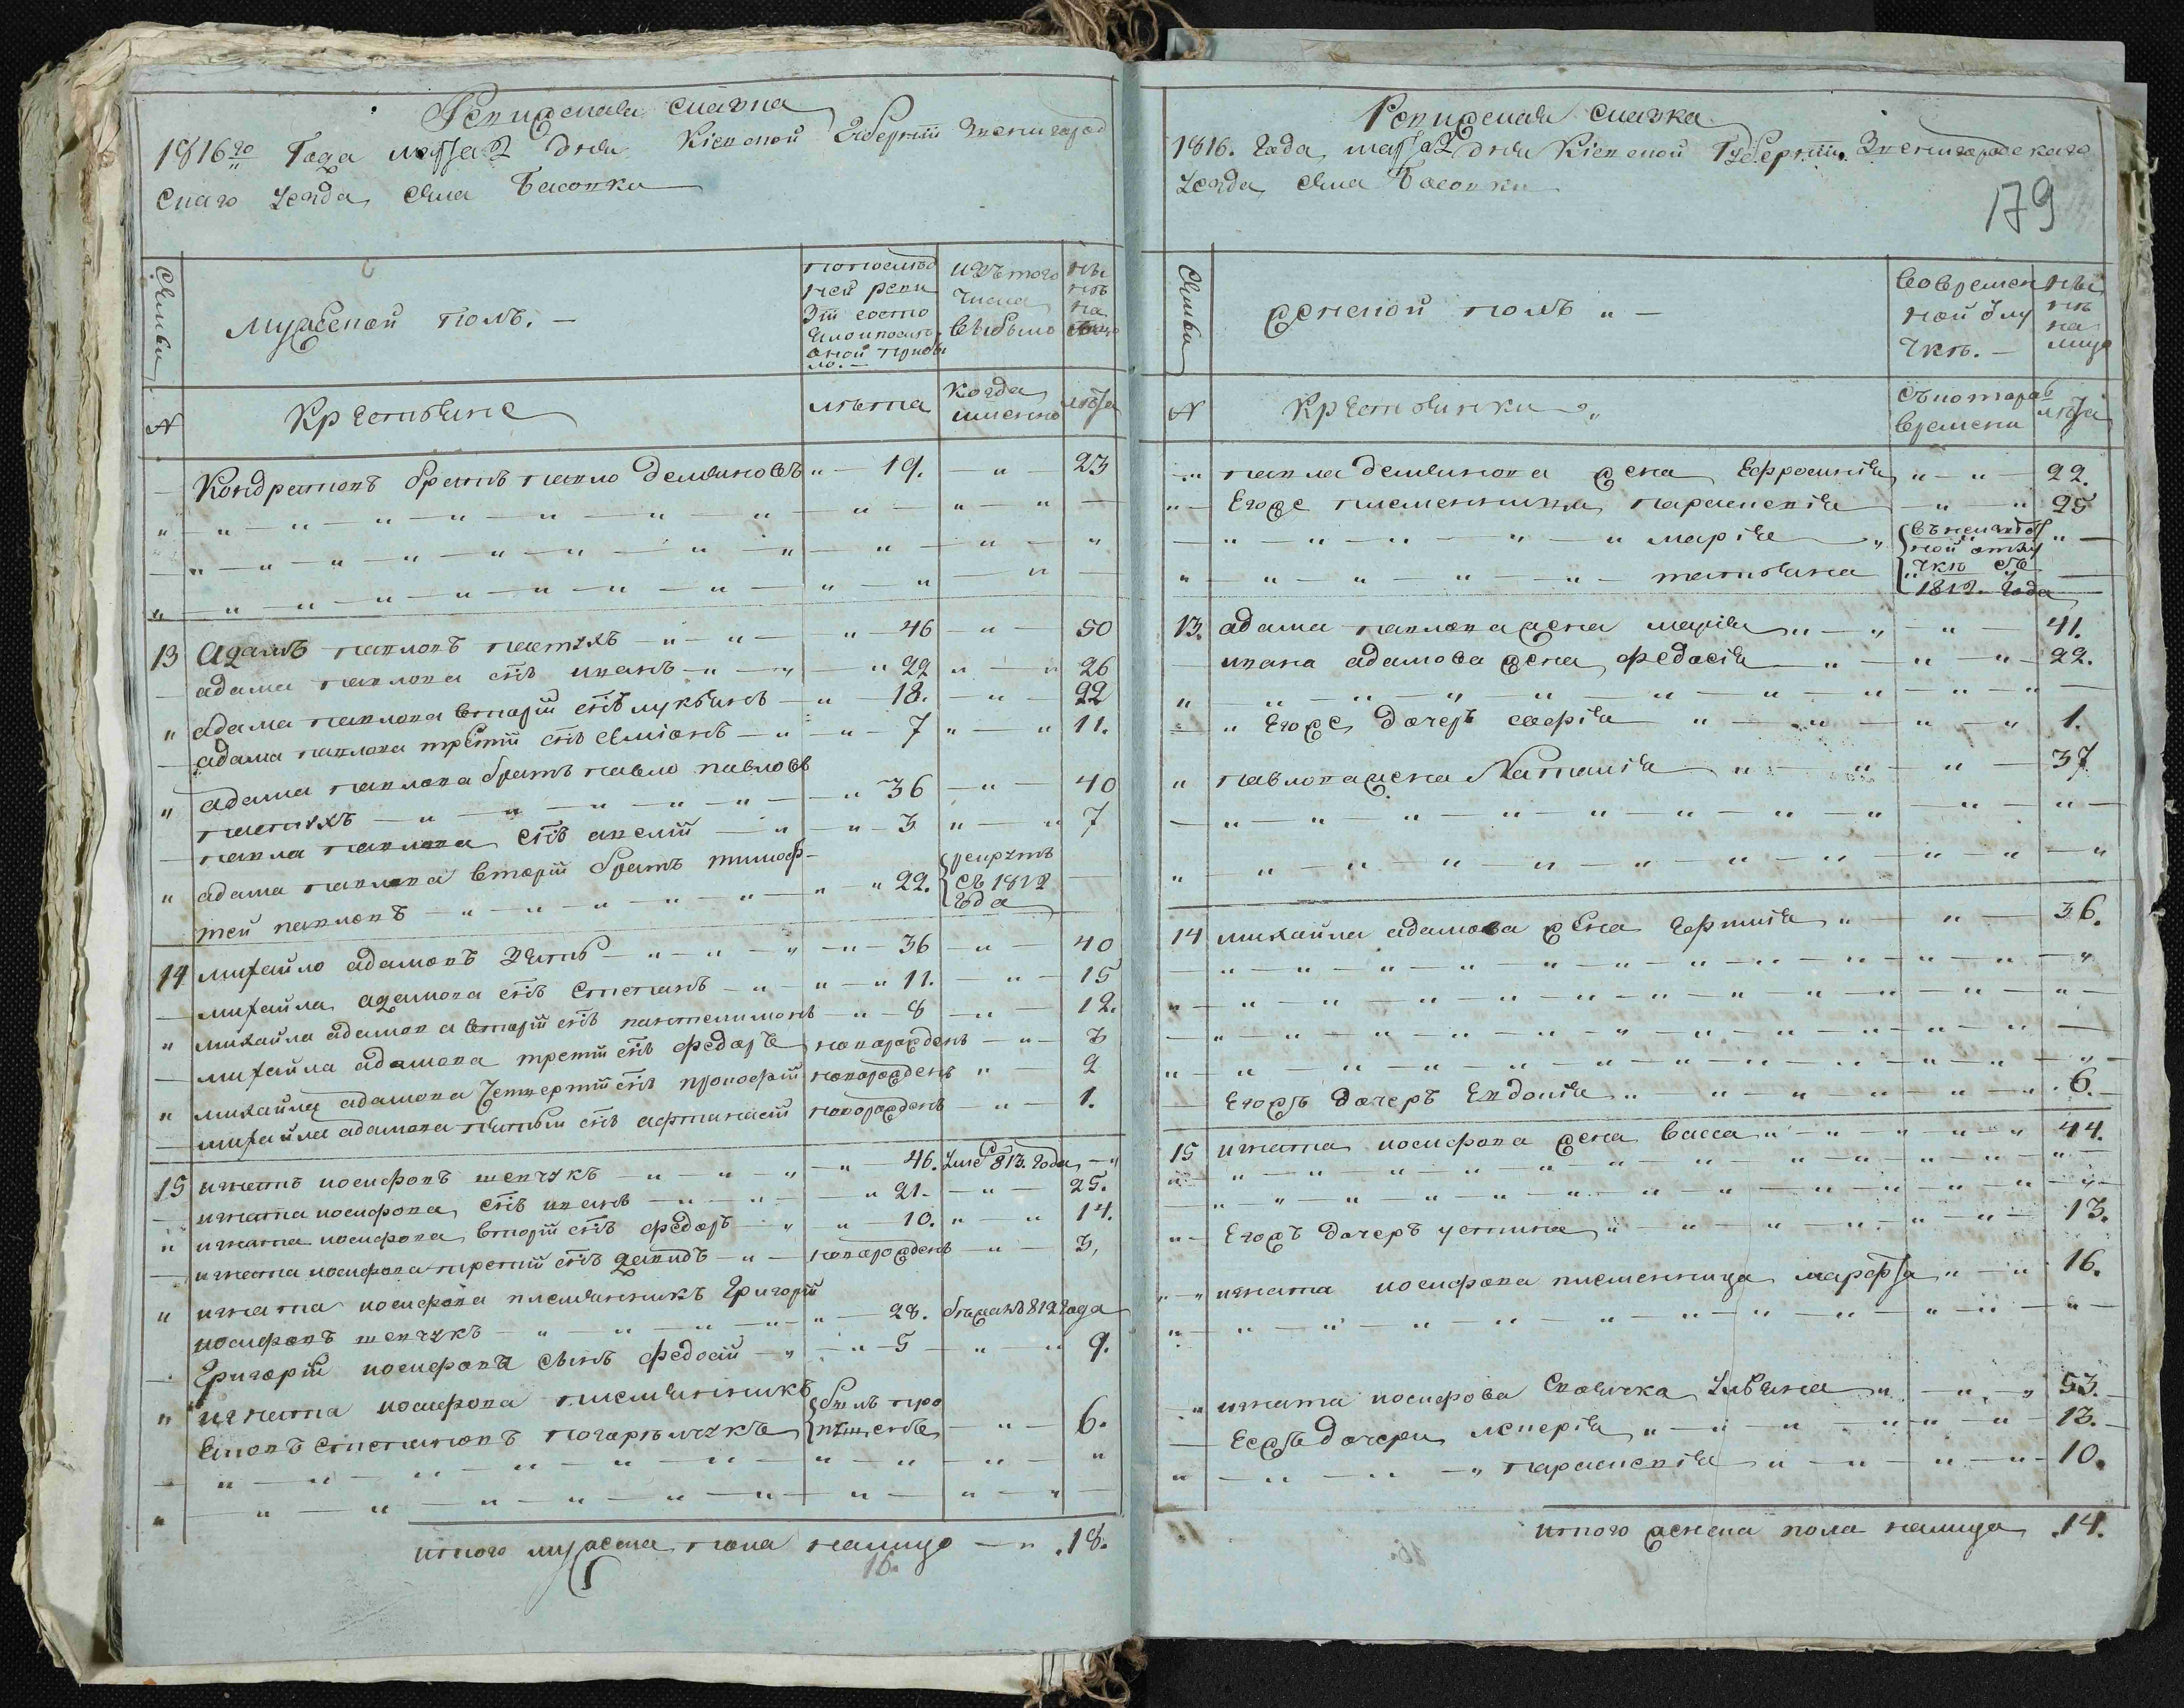 Ревизская сказка
1816го Года марта 2 дня Кіевской Губерніи Звенигород
скаго уезда села Басовки
Семьи
мужеской полъ. —
попоследней ревизіи состояло и после оной прибыло. —
изъ того числа выбыло
ныне на лицо
№
Крестьяне
лета
когда именно
лета
Кондратовъ братъ павло демяновъ " — 19. — " — 23
13 Адамъ павловъ пастухъ — " — " — " 46 — " — 50
адама павлова снъ иванъ — " — " 22 " — " 26
адама павлова вторій снъ лукянъ — " — 18. — " — 22
адама павлова третій снъ семіонъ — " — " — 7 " — " 11.
адама павлова братъ павло павловъ
пастухъ — " — " — " — " — " 36 — " — 40
павла павлова снъ авксетій — " — " — 3 " — " 7
адама павлова вторій братъ тимоф-
тей павловъ — " — " — " — " 22. рекрутъ съ 1812 года
14 михайло адамовъ зять — " — " — " — 36 — " — 40
михайла адамова снъ степанъ — " — " — " 11. " — 15
михайла адамова вторій снъ пантелимонъ — " — 8 — " — 12.
михайла адамова третій снъ федоръ новорожденъ — " — 3
михайла адамова четвертій снъ прокофій новорожденъ " — 2
михайла адамова пятый снъ афанасій новорожденъ — " — 1.
15 игнатъ иосифовъ шевчукъ — " " " — " 46. уме 813. года — "
игната иосифова снъ иванъ — " — " — " 21. — " — 25.
игната иосифова вторій снъ федоръ — " " 10. " — " 14.
игната иосифова третий снъ демидъ — " — новорожденъ — " — 3,
игната иосифова племянникъ Григорій
иосифовъ шевчукъ — " — " — " — " — 28. бежалъ 812 года
Григорій иосифова сынъ федосій — " — " — 5 — " — " 9.
игната иосифова племянникъ
степановъ былъ про 6.
итого мужеска пола налицо — " .18.
16.
Ревизская сказка
1816. Года марта 2 дня Кіевской Губерніи Звенигородскаго
уезда села Басовки
179
Семьи
женской полъ " —
вовременной отлучке. —
ныне на лицо
№
Крестьянки "
съ котораго времени
лета
павла демянова жена Ефросинія " — " — 22.
Егоже племенница параскевія — " — " 25
— " — " — " — " — " марія — "
" " — " — " — " — татіяна
отлучке съ 1812. года
13. адама павлова жена марія " — " — " 41.
ивана адамова жена федосія — " — " — " — 22.
" Егоже дочеръ софія " — " — " — " 1.
" павлова жена Наталія — " — " — " — 37
14 михайла адамова жена " — " — 36.
Егожъ дочеръ Евдокія " — " — " — " — " .6.
15 игната иосифова жена васса " — " — " — " — " 44.
Егожъ дочеръ устина " — " — " — " — " — " — 13.
игната иосифова племенница марфа " — " 16.
игната иосифова своячка Ульяна " — " — " 53.
Еежъ дочери " — " — " — " — " — 13.
" — " — " — " параскевія — " — " — " — " 10.
итого женска пола налицо .14.